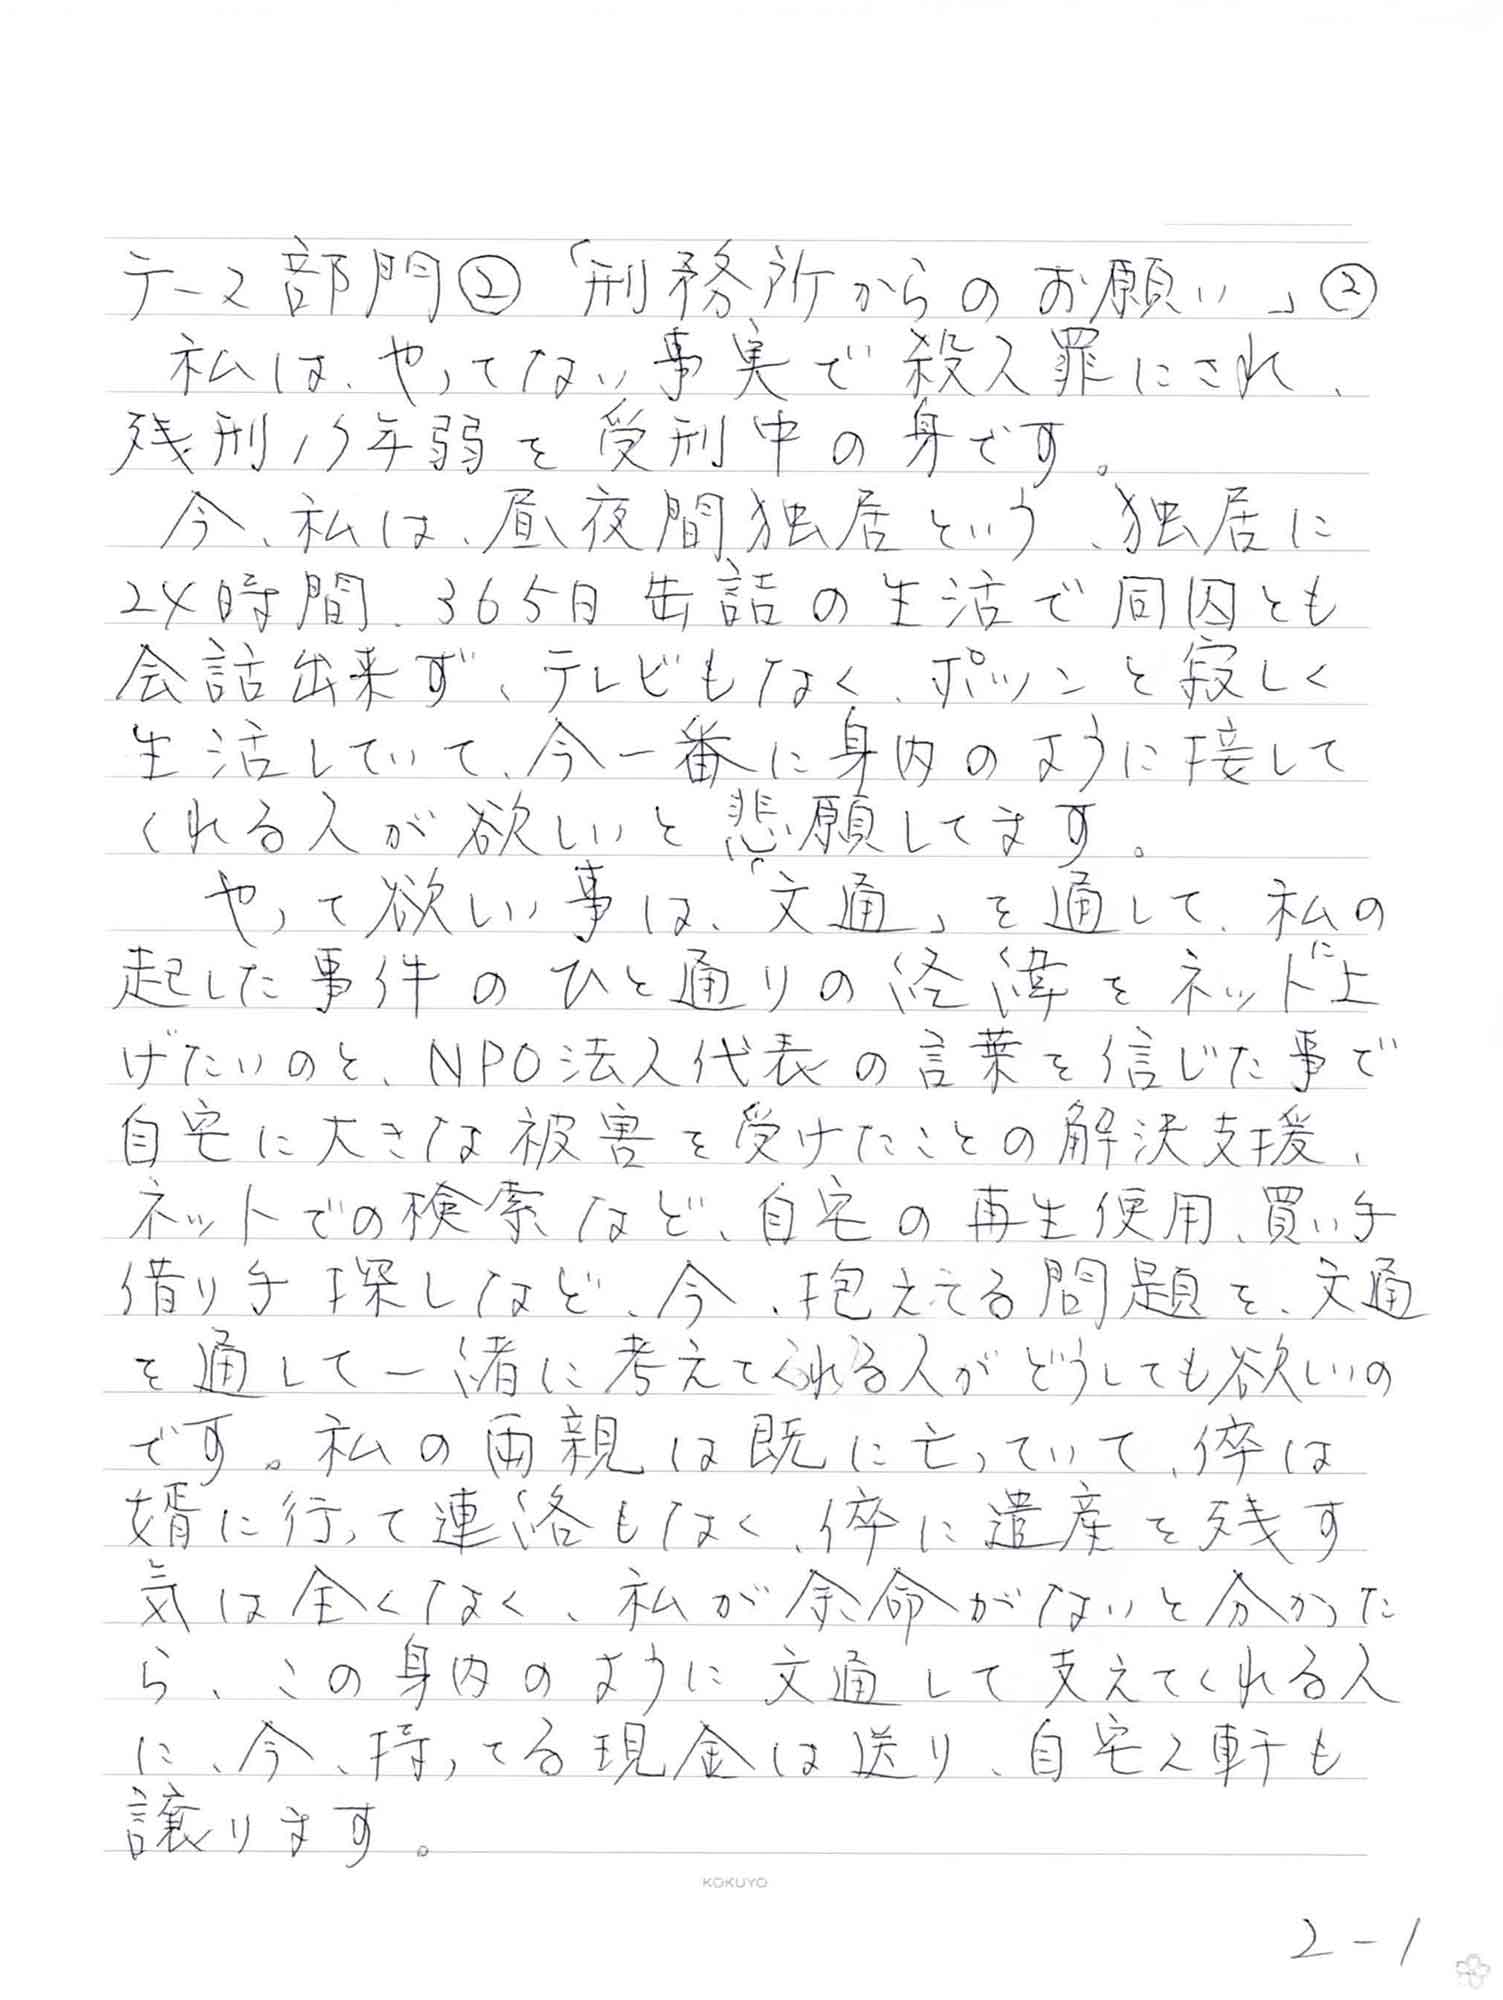 テース部門②「刑務所からのお願い」②
私は、やってない事実で殺人罪にされ、
残刑13年弱を受刑中の身です。
今、私は、昼夜間独居という、独居に
24時間、365日缶詰の生活で同囚とも
会話出来ず、テレビもなく、ポツンと寂しく
生活していて、今一番に身内のように接して
くれる人が欲しいと悲願してます。
やって欲しい事は、「文通」を通して、私の
起した事件のひと通りの経緯をネットに上
げたいのと、NPO法人代表の言葉を信じた事で
自宅に大きな被害を受けたことの解決支援、
ネットでの検索など、自宅の再生使用、買い手
借り手探しなど、今、抱えてる問題を、文通
を通して一緒に考えてくれる人がどうしても欲しいの
です。私の両親は既に亡っていて、倅は
婿に行って連絡もなく、倅に遺産を残す
気は全くなく、私が余命がないと分かった
ら、この身内のように文通して支えてくれる人
に、今、持ってる現金は送り、自宅2軒も
譲ります。
KOKUYO
2-1